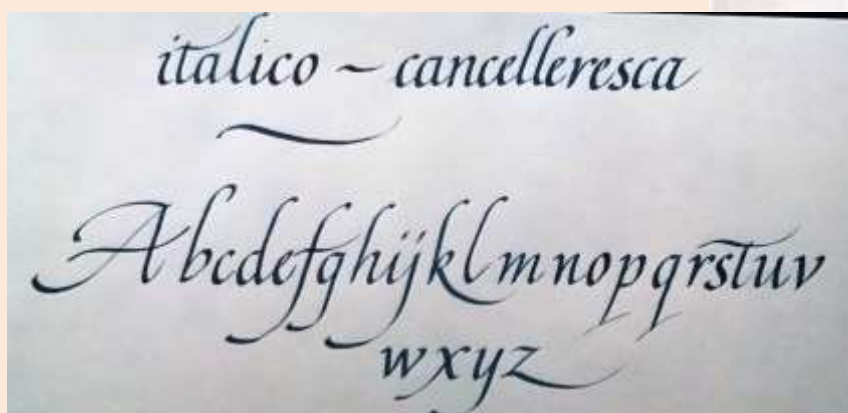 italico ~ cancelleresca
Abcdefghijklmnopqrstuv
wxyz